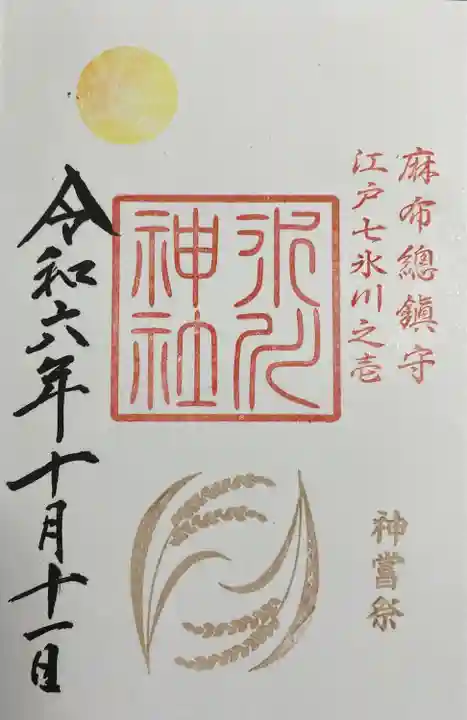 麻布總鎮守
江戸七氷川之壱
氷川
神社
神嘗祭
令和六年十月十一日